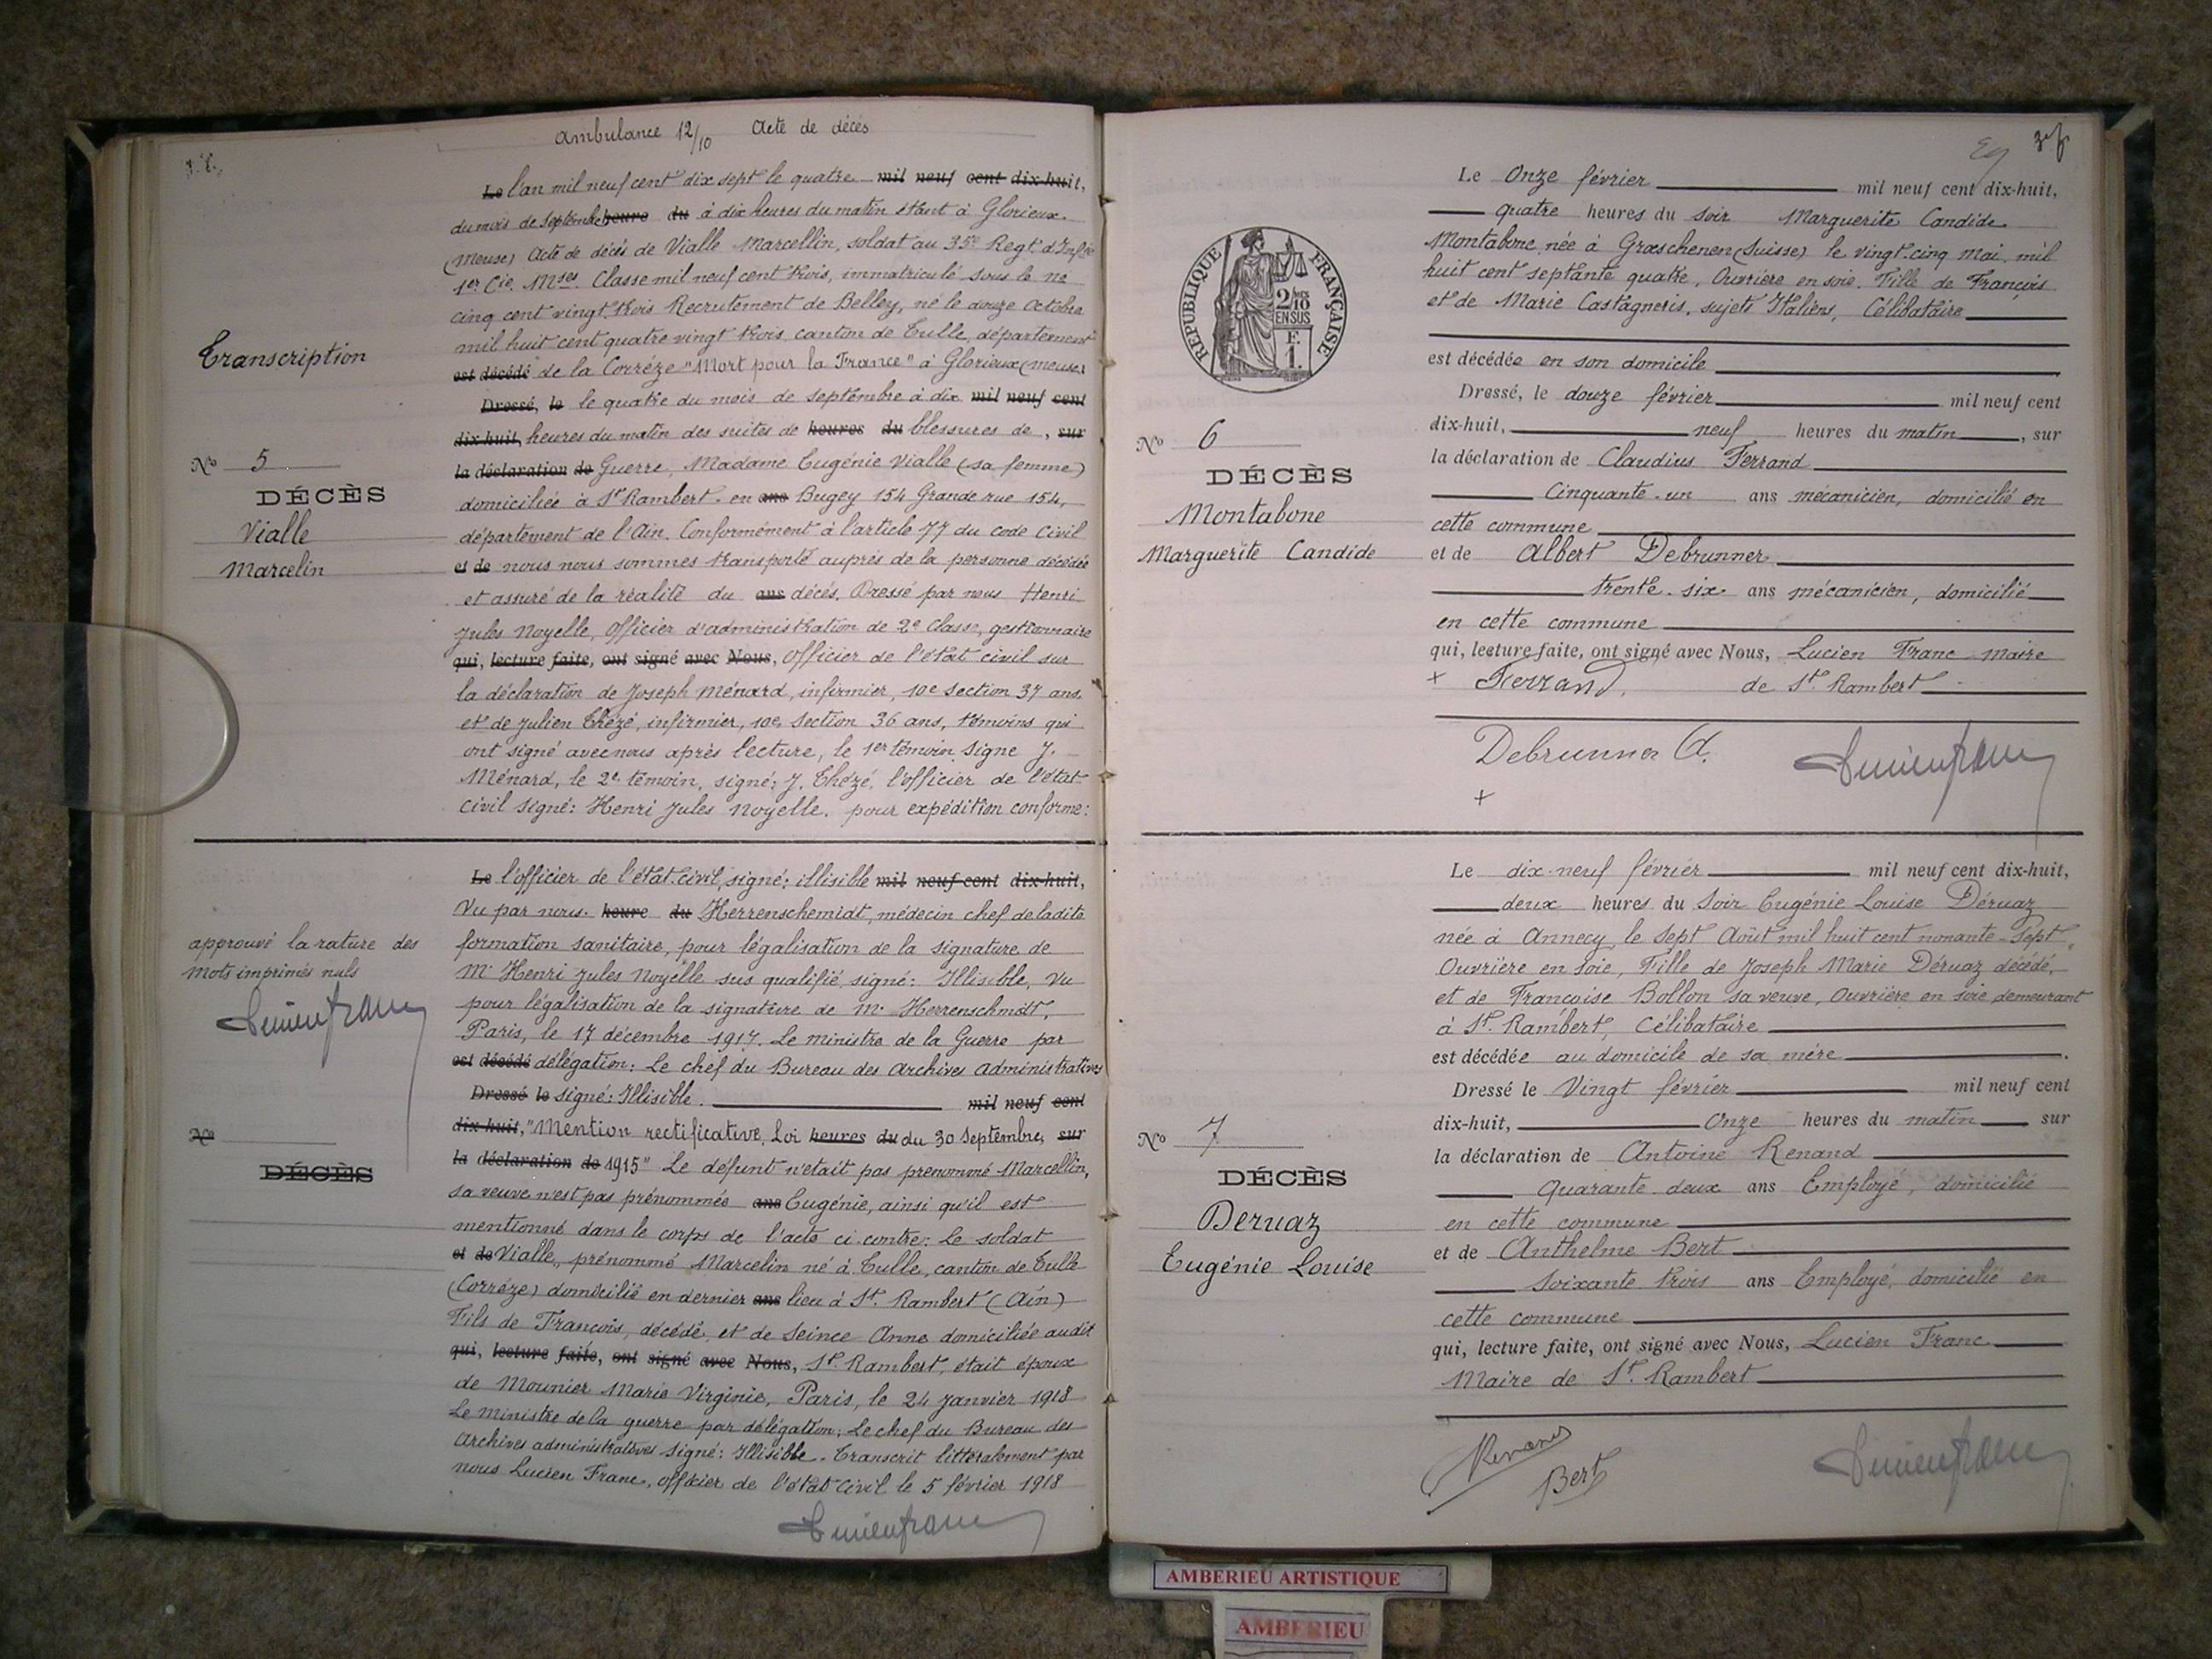 Ambulance 12/10 Acte de décès
Le l'an mil neuf cent dix sept le quatre mil neuf cent dix-huit,
du mois de septembre heure du à dix heures du matin étant à Glorieux.
(Meuse) Acte de décès de Vialle Marcellin, soldat au 35e Regt. d'Infrie
1er. Cie. Mses. Classe mil neuf cent trois, immatriculé sous le no
cinq cent vingt trois Recrutement de Belley, né le douze octobre
mil huit cent quatre vingt trois, canton de Tulle, département
est décédé de la Corréze "Mort pour la France" à Glorieux (Meuse)
Dressé, le le quatre du mois de septembre à dix mil neuf cent
dix-huit, heures du matin des suites de heures du blessures de, sur
la déclaration de Guerre, Madame Eugénie Vialle (sa femme)
domiciliée à St Rambert. en ans Bugey 154 Grande rue 154,
département de l'Ain. Conformément à l'article 77 du code Civil
et de nous nous sommes transporté auprès de la personne décédée
et assuré de la réalité du ans décés. Dressé par nous Henri
Jules Noyelle, Officier d'administration de 2e Classe, gestionnaire
qui, lecture faite, ont signé avec Nous, Officier de l'état civil sur
la déclaration de Joseph Ménard, infirmier, 10e section 37 ans.
et de Julien Thézé, infirmier, 10e Section 36 ans, témoins qui
ont signé avec nous après lecture, le 1er témoin Signe J.
Ménard, le 2e témoin, signé: J. Thézé, l'officier de l'état
civil signé: Henri Jules Noyelle. pour expédition conforme:
Transcription
No 5
DÉCÈS
Vialle
Marcelin
Le l'officier de l'état civil, signé: illisible mil neuf cent dix-huit,
Vu par nous. heure du Herrenschemidt, médecin chef de ladite
formation sanitaire, pour légalisation de la signature de
Mr Henri Jules Noyelle sus qualifié, signé: Illisible, Vu
pour légalisation de la signature de Mr Herrenschmdt,
Paris, le 17 décembre 1917. Le ministre de la Guerre par
est décédé délégation: Le chef du Bureau des Archives administratives
Dressé le signé: Illisible. mil neuf cent
dix-huit, "Mention rectificative, Loi heures du du 30 Septembre, sur
la déclaration de 1915" Le défunt n'etait pas prenommé Marcellin,
sa veuve n'est pas prénommés ans Eugénie, ainsi qu'il est
mentionné dans le corps de l'acte ci-contre: Le soldat
et de Vialle, prénommé Marcelin né à Tulle, canton de Tulle
(Corréze) domicilié en dernier ans lieu à St. Rambert (Ain)
Fils de François, décédé, et de Seince Anne domiciliée audit
qui, lecture faite, ont signé avec Nous, St. Rambert, était époux
de Mounier Marie Virginie, Paris, le 24 Janvier 1918
Le ministre de la guerre par délégation: Le chef du Bureau des
Archives administratives Signé: Illisible. Transcrit littéralement par
nous Lucien Franc, officier de l'état civil le 5 février 1918
Lucien franc
approuvé la rature des
mots imprimés nuls
Lucien franc
No
DÉCÈS
RÉPUBLIQUE FRANÇAISE
2/10 EN SUS
F.
1.
Le Onze février mil neuf cent dix-huit,
quatre heures du soir Marguerite Candide
Montabone née à Grœschenen (Suisse) le vingt-cinq mai mil
huit cent septante quatre, Ouvrière en soie. Fille de François
et de Marie Castagneris, sujets Italiens, Célibataire
est décédée en son domicile
Dressé, le douze février mil neuf cent
dix-huit, neuf heures du matin, sur
la déclaration de Claudius Ferrand
Cinquante-un ans mécanicien, domicilié en
cette commune
et de Albert Debrunner
trente-six ans mécanicien, domicilié
en cette commune
qui, lecture faite, ont signé avec Nous, Lucien Franc Maire
+ Ferrand, de St. Rambert
Debrunner A. Lucien franc
+
No 6
DÉCÈS
Montabone
Marguerite Candide
Le dix-neuf février mil neuf cent dix-huit,
deux heures du Soir Eugénie Louise Déruaz
née à Annecy le Sept Août mil huit cent nonante-Sept,
Ouvrière en soie, Fille de Joseph Marie Déruaz décédé,
et de Francoise Bollon sa veuve, Ouvrière en soie demeurant
à St. Rambert, Célibataire
est décédée au domicile de sa mère.
Dressé le Vingt février mil neuf cent
dix-huit, Onze heures du matin sur
la déclaration de Antoine Renand
Quarante deux ans Employé, domicilié
en cette commune
et de Anthelme Bert
Soixante trois ans Employé, domicilié en
cette commune
qui, lecture faite, ont signé avec Nous, Lucien Franc
Maire de St. Rambert
Renand
Bert
Lucien franc
No 7
DÉCÈS
Deruaz
Eugénie Louise
AMBERIEU ARTISTIQUE
AMBERIEU